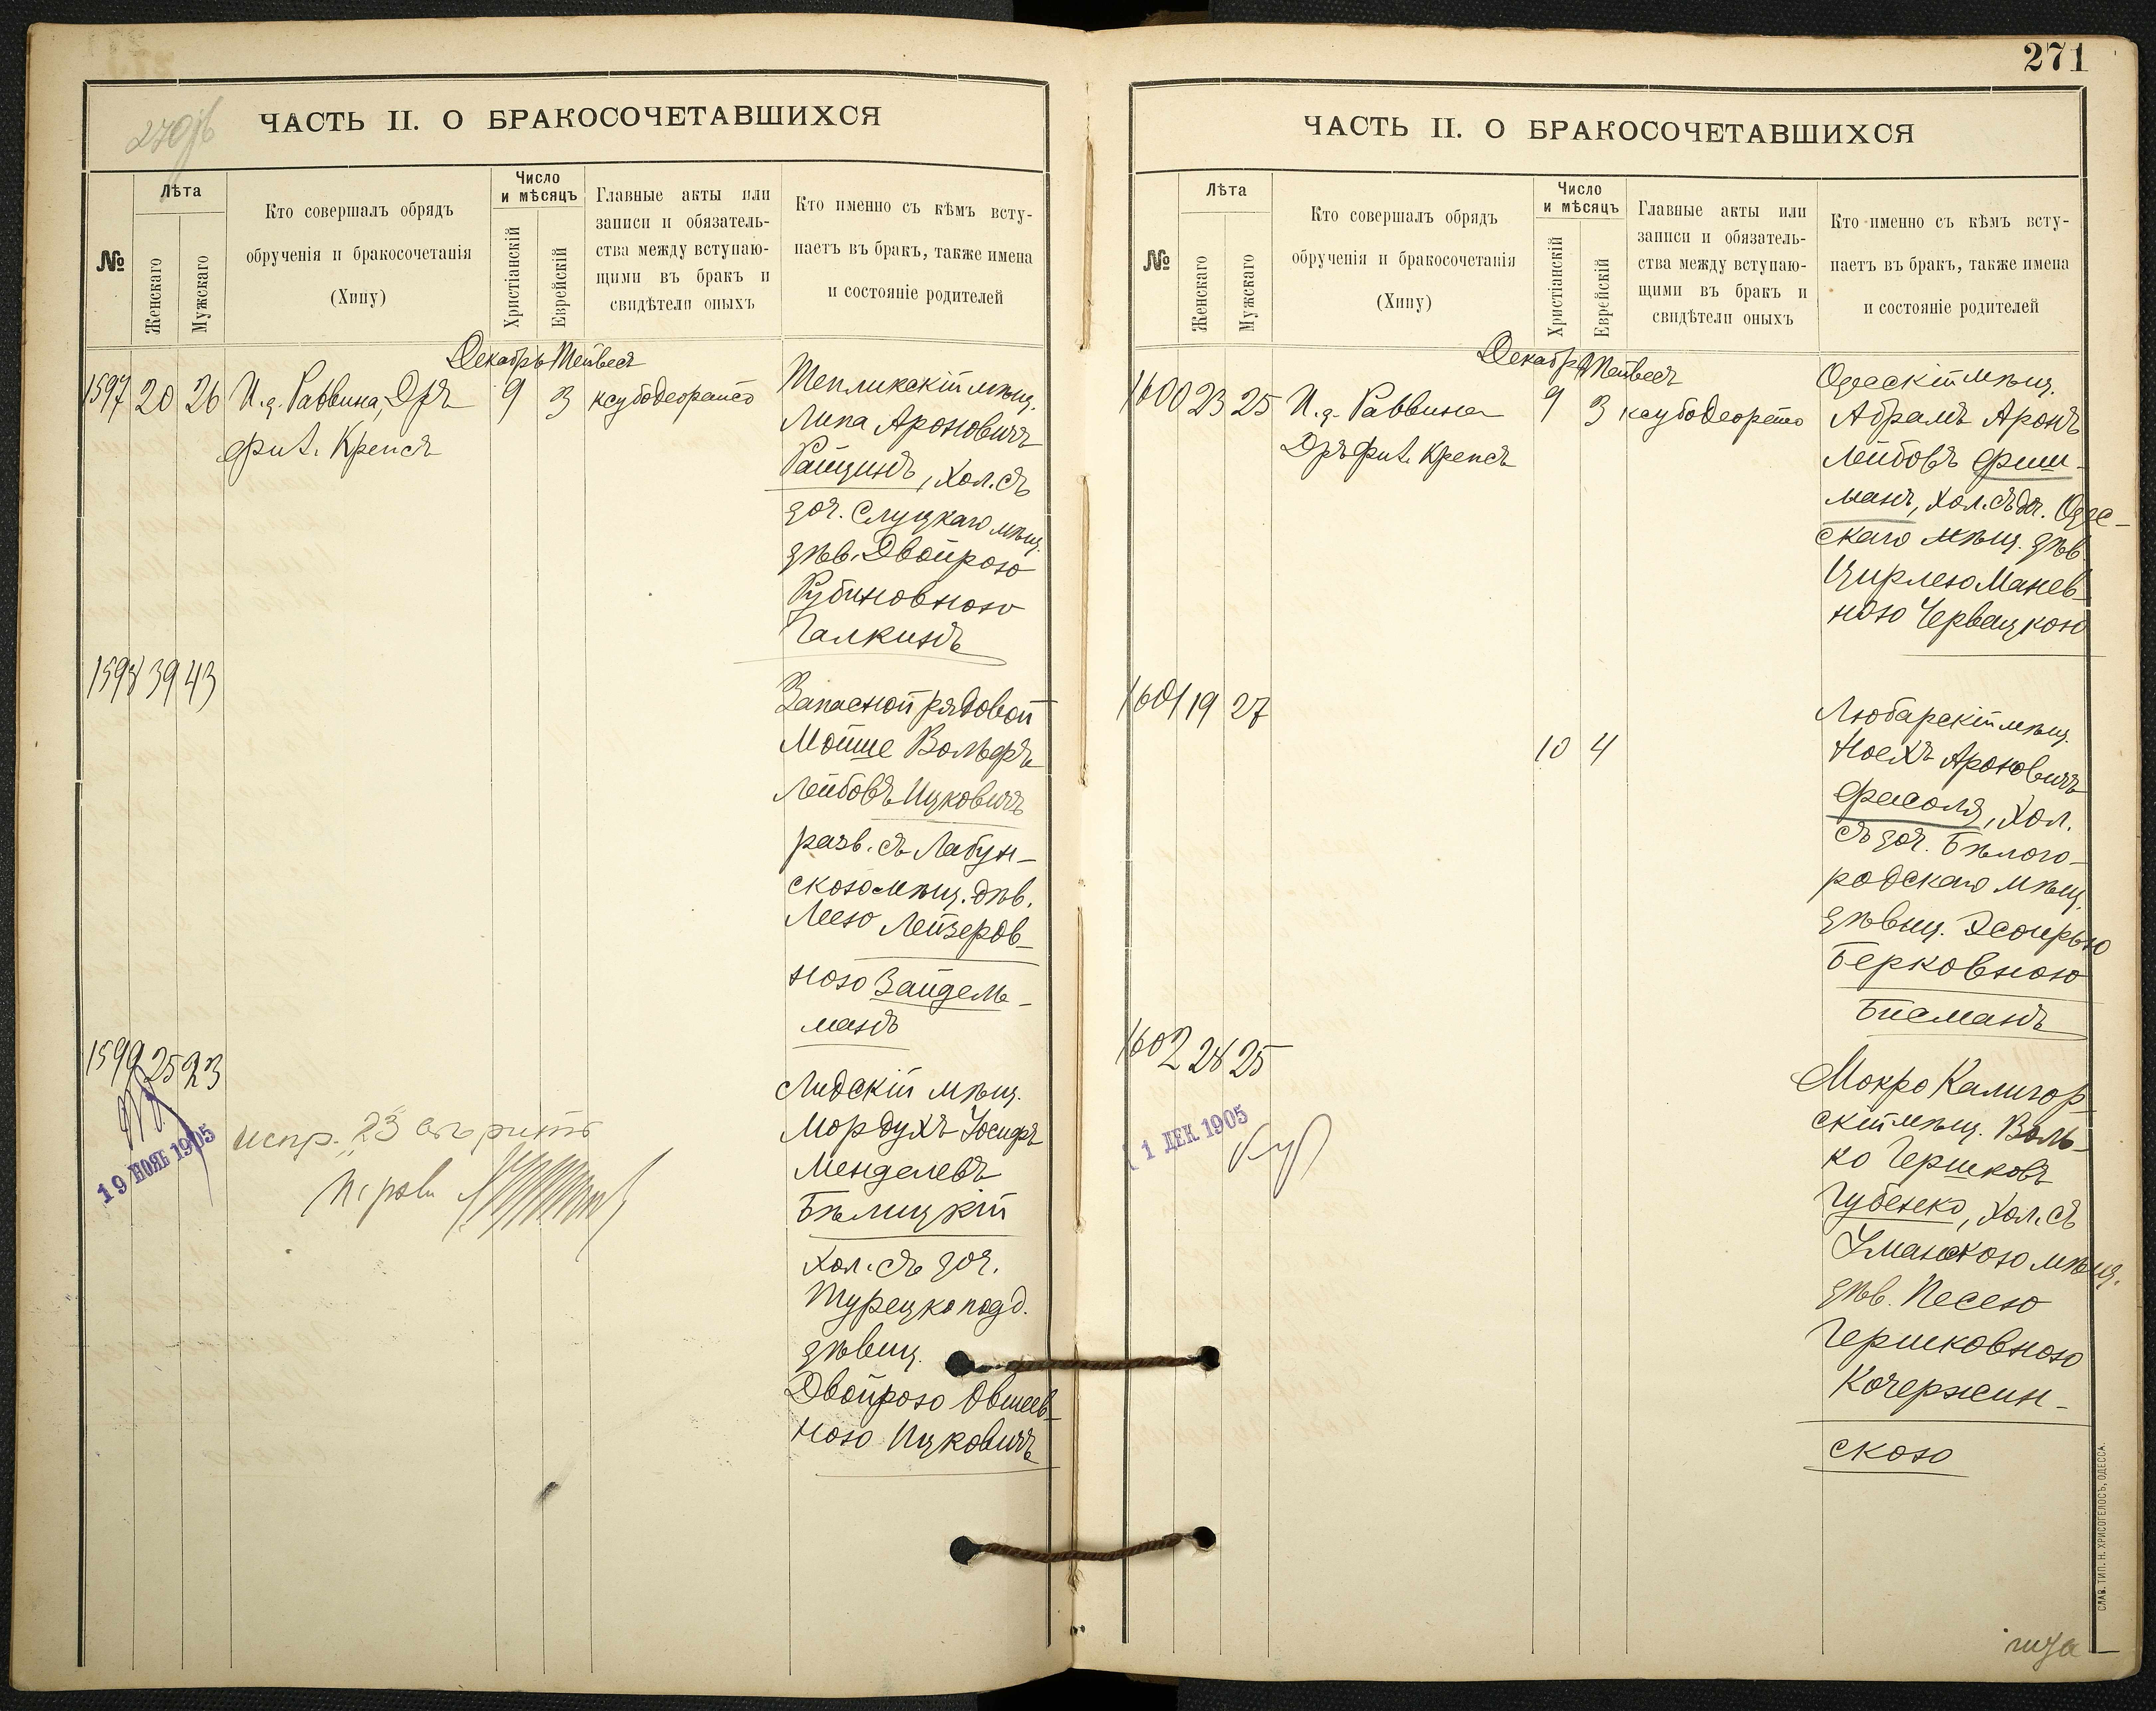 270 об
ЧАСТЬ II. О БРАКОСОЧЕТАВШИХСЯ
№
Лѣта
Женскаго
Мужскаго
Кто совершалъ обрядъ
обрученія и бракосочетанія
(Хипу)
Число
и мѣсяцъ
Христіанскій
Еврейскій
Главные акты или
записи и обязатель-
ства между вступаю-
щими въ бракъ и
свидѣтели оныхъ
Кто именно съ кѣмъ всту-
паетъ въ бракъ, также имена
и состояніе родителей
Декабрь Тейвесъ
1597 20 26 И.д. Раввина, Дръ 9 3 ксубодеорайсо
фил. Крепсъ
Тепликскій мѣщ.
Липа Ароновичъ
Ращинъ, хол. съ
доч. Слуцкаго мѣщ.
дѣв. Двойрою
Рубиновною
Галкинъ
1598 39 43
Запасной рядовой
Мойше Вольфъ
Лейбовъ Ицковичъ
разв. съ Лабун-
скою мѣщ. дѣв.
Леею Лейзеров-
ною Зайдель-
манъ
1599 25 23
19 НОЯБ 1905
испр. "23"
Лидскій мѣщ.
Мордухъ Іосифъ
Менделевъ
Бѣлицкій
хол. съ доч.
Турецко подд.
дѣвиц.
Двойрою Овшеев-
ною Ицковичъ
271
ЧАСТЬ II. О БРАКОСОЧЕТАВШИХСЯ
№
Лѣта
Женскаго
Мужскаго
Кто совершалъ обрядъ
обрученія и бракосочетанія
(Хипу)
Число
и мѣсяцъ
Христіанскій
Еврейскій
Главные акты или
записи и обязатель-
ства между вступаю-
щими въ бракъ и
свидѣтели оныхъ
Кто именно съ кѣмъ всту-
паетъ въ бракъ, также имена
и состояніе родителей
Декабрь Тейвесъ
1600 23 25 И.д. Раввина 9 3 ксубодеорайсо
Дръ фил. Крепсъ
Одесскій мѣщ.
Абрамъ Аронъ
Лейбовъ Фиш-
манъ, хол. съ доч. Одес-
скаго мѣщ. дѣв.
Цирлею Манев-
ною Червацкою
1601 19 27
10 4
Любарскій мѣщ.
Ноехъ Ароновичъ
Фасоля, хол.
съ доч. Бѣлого-
родскаго мѣщ.
дѣвиц. Эсфирью
Берковною
Бисманъ
1602 28 25
1 ДЕК 1905
Мокро Калигор-
скій мѣщ. Воль-
ко Гершковъ
Губенко, хол. съ
Уманскою мѣщ.
дѣв. Песею
Гершковною
Кочержин-
скою
СЛАВ. ТИП. Н. ХРИСОГЕЛОСЪ, ОДЕССА.